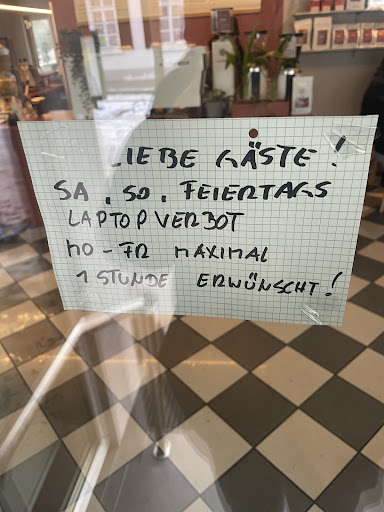 LIEBE GÄSTE!
SA, SO, FEIERTAGS
LAPTOPVERBOT
MO-FR MAXIMAL
1 STUNDE ERWÜNSCHT!